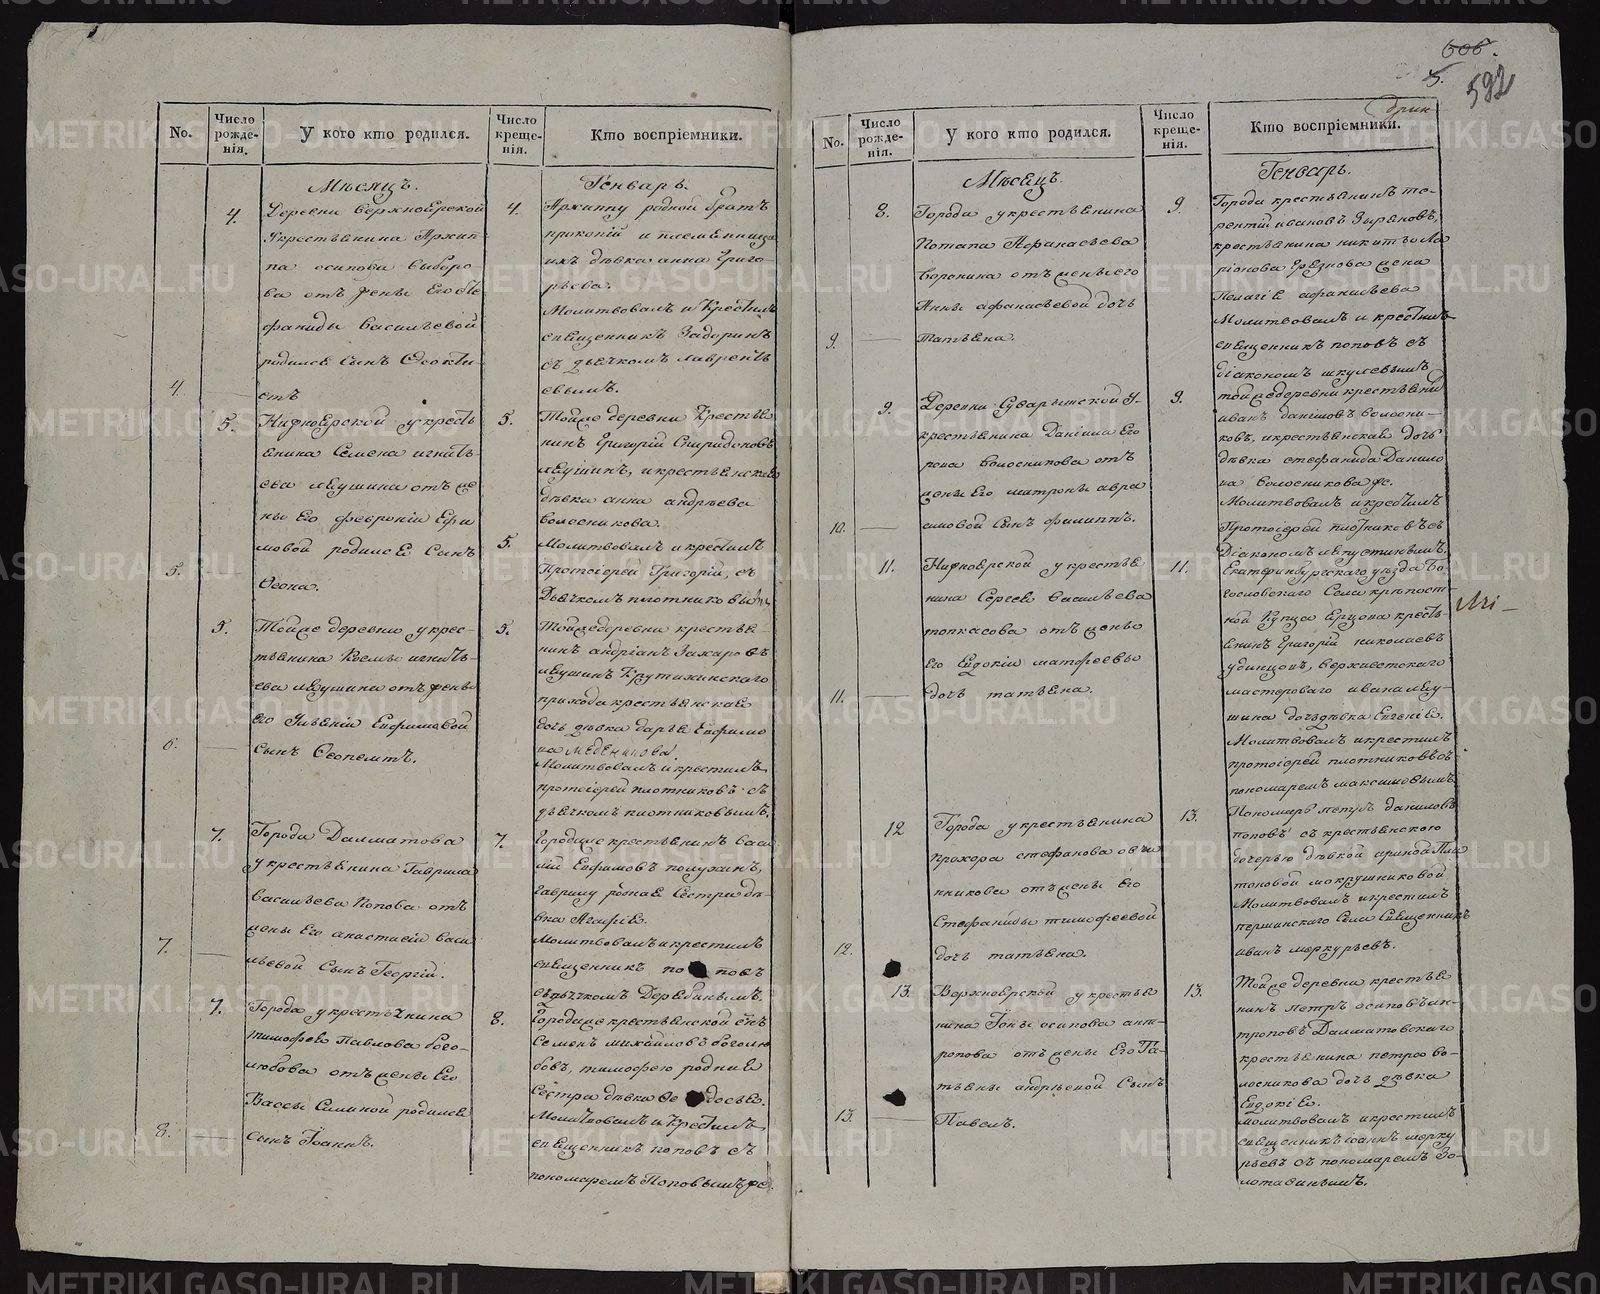 606.
5.
592
No.
Число рожде-нія.
У кого кто родился.
Число креще-нія.
Кто воспріемники.
Мѣсяцъ.
Генварь.
4.
Деревни Верхноярской
укрестьянина Архип-
па осипова выборо
ва отъ жены Его сте
фаниды васильевой
родился сынъ Феокти-
4. стъ
4.
Архиппу родной братъ
прокопій и племянница
ихъ дѣвка анна Григо-
рьева.
Молитвовалъ и Крестилъ
священникъ Задоринъ
съ дьячкомъ лавренть
евымъ.
5.
Нижноярской у кресть
янина Семена игнать-
ева лѣушина отъ же
ны Его февроніи Ефи
мовой родился Сынъ
5. Феона.
5.
Тойже деревни Крестья
нинъ Григорій Спиридоновъ
лѣушинъ, и крестьянская
дѣвка анна андрѣева
волосникова.
5.
Молитвовалъ и крестилъ
Протоіерей Григорій, съ
Дьячкомъ плотниковымъ
5.
Тойже деревни у крес-
тьянина Козмы игнать-
ева лѣушина отъ жены
его Евфимовой
6. Сынъ Феопемтъ.
5.
Тойже деревни крестья-
нинъ андріанъ Захаровъ
лѣушинъ Крутихинскаго
прихода крестьянская
дочь дѣвка дарья Евфимо
ва
Молитвовалъ и крестилъ
протоіерей плотниковъ съ
дьячкомъ плотниковымъ.
7.
Города Далматова
у крестьянина Гаврила
васильева Попова отъ
жены Его анастасіи васи
7. льевой Сынъ Георгій.
7.
Городшe крестьянинъ васи
лій Ефимовъ полухинъ,
гаврилу родная Сестра дѣ-
вка Агафія.
Молитвовалъ и крестилъ
священникъ поповъ
съ дьячкомъ Дерябинымъ.
7.
Города у крестьянина
тимофея Павлова бого-
любова отъ жены Его
Вассы Саминой родился
8. сынъ Іоаннъ.
8.
Городшe крестьянской сынъ
Семенъ михайловъ боголю
бовъ, тимофею родная
Сестра дѣвка Феодосья.
Молитвовалъ и Крестилъ
священникъ поповъ съ
пономаремъ Поповымъ же.
No.
Число рожде-нія.
У кого кто родился.
Число креще-нія.
Кто воспріемники.
Мѣсяцъ.
Генварь.
8.
Города у крестьянина
Потапа Афанасьева
воронина отъ жены его
Анны афанасьевой дочь
9. татьяна.
9.
Города крестьянинъ те-
рентій ивановъ Зыряновъ,
крестьянина никиты Ла
ріонова Грязнова жена
Пелагія афанасьева
Молитвовалъ и крестилъ
священникъ поповъ съ
діакономъ шкулевымъ
9.
Деревни Суварышской у-
крестьянина Даніила Его
рова волосникова отъ
жены Его матроны авра
10. амовой Сынъ филиппъ.
9.
тойже деревни крестьянин
иванъ даниловъ волосни-
ковъ, и крестьянская дочь
дѣвка стефанида Данило
ва волосникова же.
Молитвовалъ и крестилъ
Протоіерей плотниковъ съ
Діакономъ лѣпустинымъ.
11.
Нижноярской у крестья
нина Сергея Васильева
топкасова отъ жены
его Евдокіи матфеевы
11. дочь татьяна.
11.
Екатеринбургскаго уѣзда бо-
гословскаго Села крѣпост-
ной Купца Ерцова кресть-
янинъ Григорій николаевъ
удинцовъ, верхисетскаго
мастероваго ивана лѣу-
шина дочь дѣвка Евгенія.
Молитвовалъ и крестилъ
протоіерей плотниковъ съ
пономаремъ максимовымъ
12
Города у крестьянина
прохора стефанова овчи
нникова отъ жены Его
Стефаниды тимофеевой
12. дочь татьяна.
13.
Пономарь петръ даниловъ
поповъ съ крестьянскою
дочерью дѣвкой ириной Пла
тоновой мокрушниковой
Молитвовалъ и крестилъ
першинскаго Села Священникъ
иванъ меркурьевъ.
13.
Верхноярской у крестья
нина Іоны осипова ант-
ропова отъ жены Его Та-
тьяны андрѣевой Сынъ
13. Павелъ.
13.
Тойже деревни крестья
нинъ петръ осиповъ ан-
троповъ Далматовскаго
крестьянина петра во-
лосникова дочь дѣвка
Евдокія.
молитвовалъ и крестилъ
священникъ іоаннъ мерку
рьевъ съ пономаремъ Зо-
лотавинымъ.
METRIKI.GASO-URAL.RU